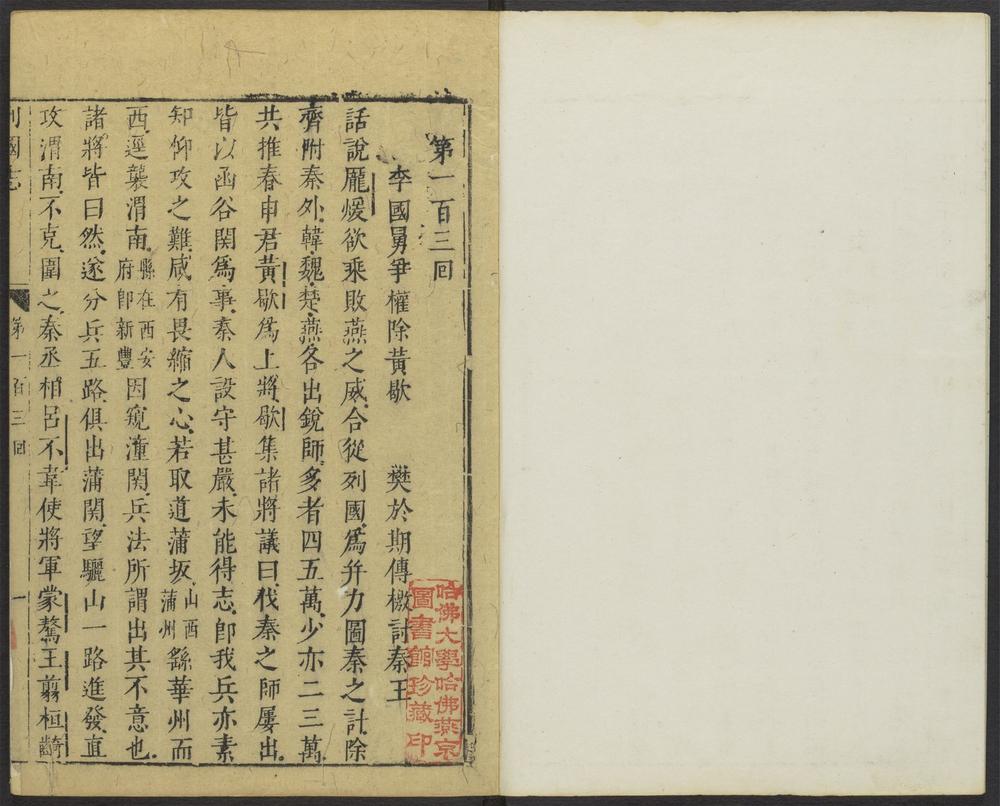 第一百三回
李國舅爭權除黃歇　樊於期傳檄討秦王
話說龐煖欲乘敗燕之威合從列國爲幷力圖秦之計除
齊附秦外韓魏楚燕各出銳師多者四五萬少亦二三萬
共推春申君黃歇爲上將歇集諸將議曰伐秦之師屢出
皆以函谷關爲事秦人設守甚嚴未能得志卽我兵亦素
知仰攻之難咸有畏縮之心若取道蒲坂山西蒲州繇華州而
西逕襲渭南縣在西安府卽新豐因窺潼關兵法所謂出其不意也
諸將皆曰然遂分兵五路俱出蒲關望驪山一路進發直
攻渭南不克圍之秦丞相呂不韋使將軍蒙驁王翦桓齮
列國志　第一百三回　一
哈佛大學哈佛燕京
圖書館珍藏印